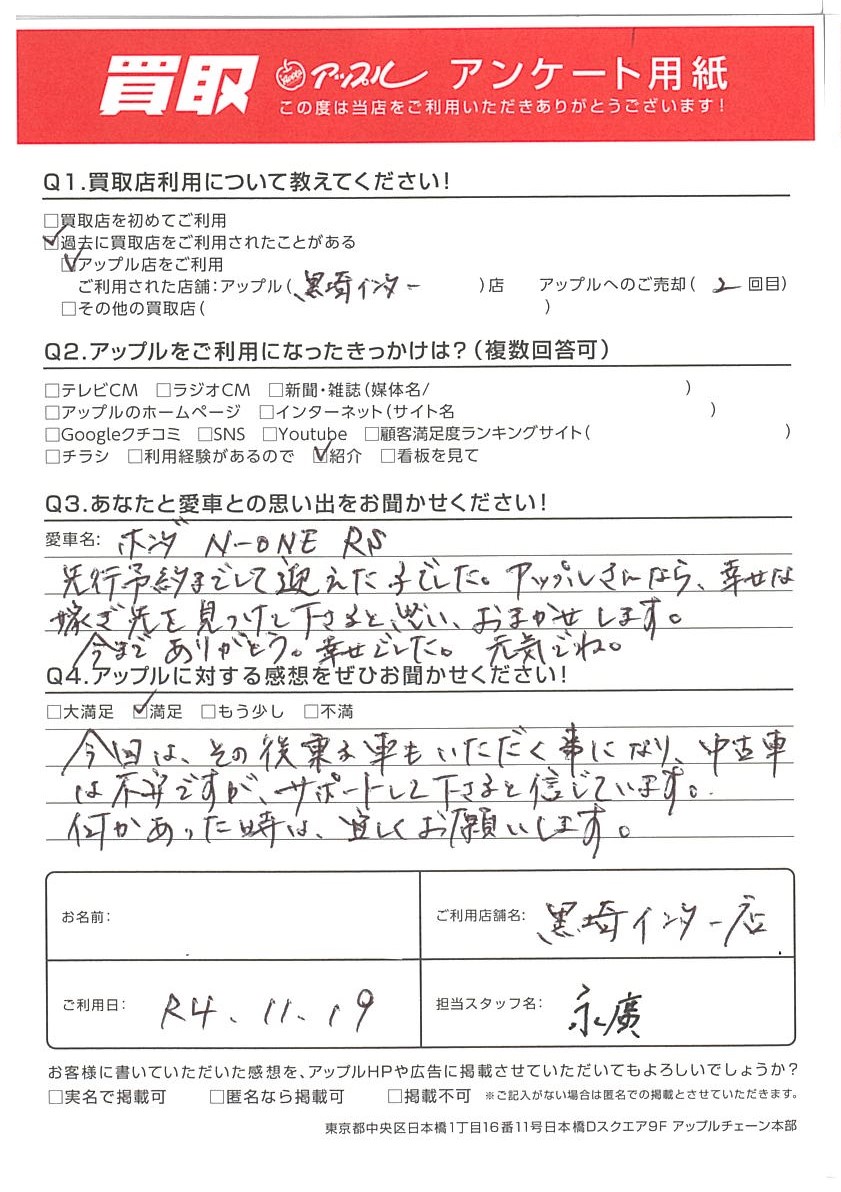 買取 Apple アップル アンケート用紙
この度は当店をご利用いただきありがとうございます!
Q1.買取店利用について教えてください!
□買取店を初めてご利用
☑過去に買取店をご利用されたことがある
☑アップル店をご利用
ご利用された店舗:アップル(黒埼インター)店 アップルへのご売却(2回目)
□その他の買取店( )
Q2.アップルをご利用になったきっかけは?(複数回答可)
□テレビCM □ラジオCM □新聞・雑誌(媒体名/ )
□アップルのホームページ □インターネット(サイト名 )
□Googleクチコミ □SNS □Youtube □顧客満足度ランキングサイト( )
□チラシ □利用経験があるので ☑紹介 □看板を見て
Q3.あなたと愛車との思い出をお聞かせください!
愛車名: ホンダ N-ONE RS
先行予約までして迎えた子でした。アップルさんなら、幸せな
嫁ぎ先を見つけて下さると思い、おまかせします。
今までありがとう。幸せでした。元気でね。
Q4.アップルに対する感想をぜひお聞かせください!
□大満足 ☑満足 □もう少し □不満
今回は、その後乗る車もいただく事になり、中古車
は不安ですが、サポートして下さると信じています。
何かあった時は、宜しくお願いします。
お名前:
ご利用店舗名: 黒埼インター店
ご利用日: R4.11.19
担当スタッフ名: 永廣
お客様に書いていただいた感想を、アップルHPや広告に掲載させていただいてもよろしいでしょうか?
□実名で掲載可 □匿名なら掲載可 □掲載不可 ※ご記入がない場合は匿名での掲載とさせていただきます。
東京都中央区日本橋1丁目16番11号日本橋Dスクエア9F アップルチェーン本部